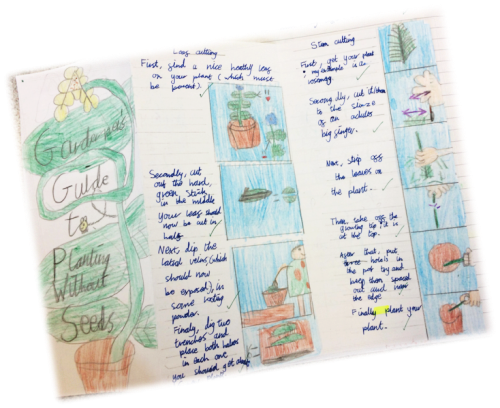 Gardener's
Guide
to
Planting
Without
Seeds
Leaf cutting...
First, find a nice healthy leaf
on your plant (which must
be parent).
Secondly, cut
out the hard,
green, Stalk
in the middle
Your leaf should
now be cut in
half.
Next, dip the
lateral veins, (which
should now
be exposed), in
some rooting
powder.
Finally, dig two
trenches and
place both halves
in each one
you should get
Stem cutting
First, get your plant
my example is a
rosemary.
Secondly, cut it down
to the size
of an adults
big finger.
Next, strip off
the leaves on
the plant.
Then take off the
growing tip; it is
at the top.
After that, put
some holes in
the pot try and
keep them spaced
out and near
the edge
Finally plant your
plant.